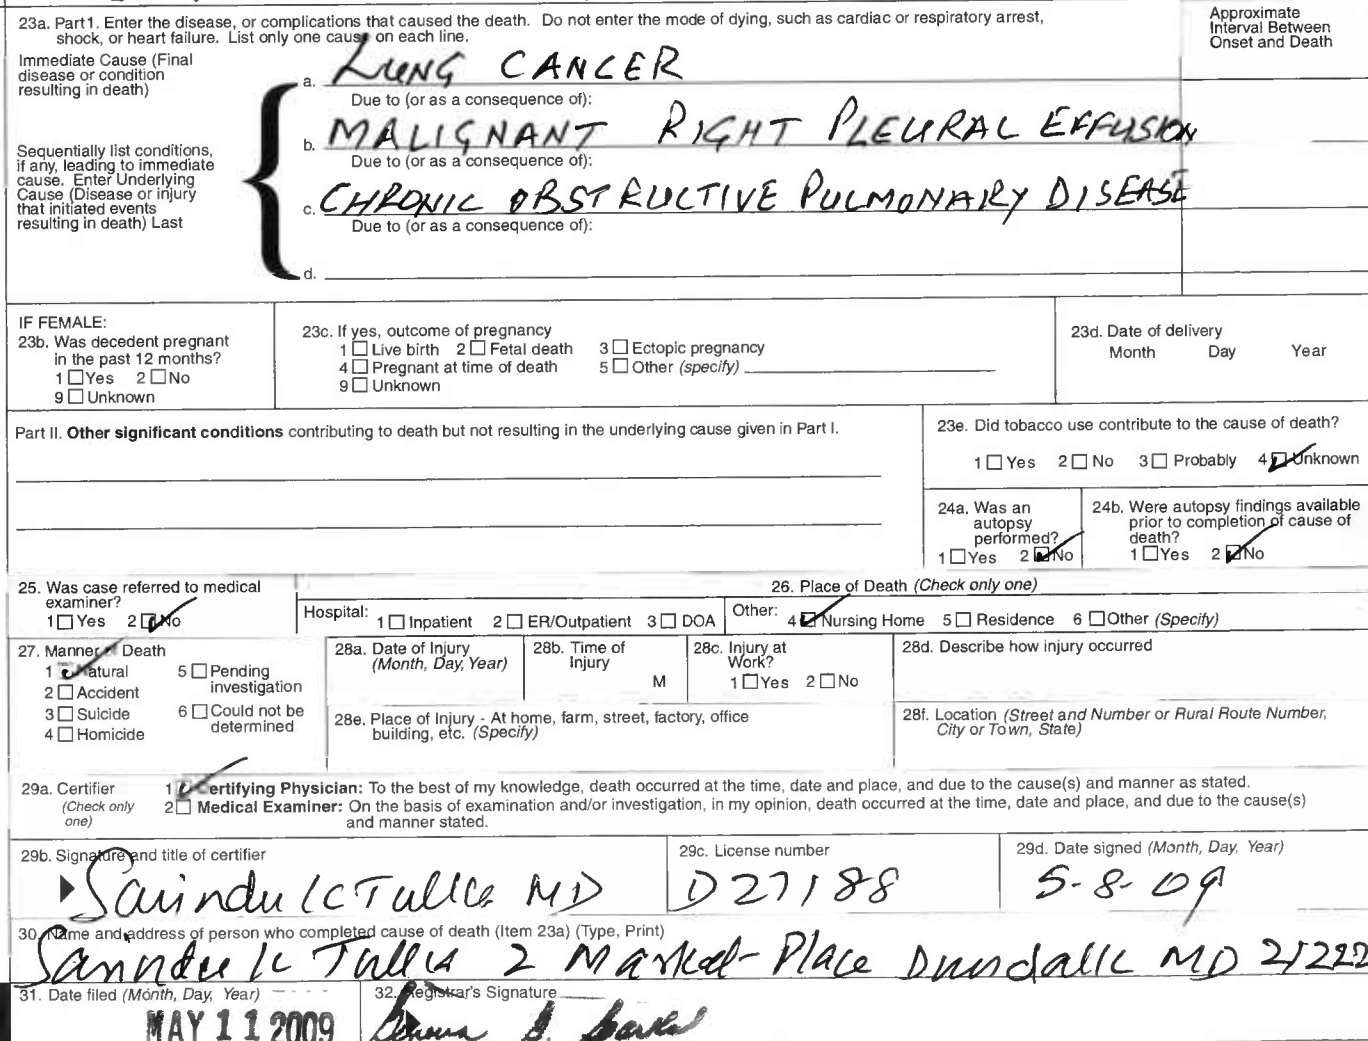 23a. Part1. Enter the disease, or complications that caused the death. Do not enter the mode of dying, such as cardiac or respiratory arrest,
shock, or heart failure. List only one cause on each line.
Approximate
Interval Between
Onset and Death
Immediate Cause (Final
disease or condition
resulting in death)
a. LUNG CANCER
Due to (or as a consequence of):
Sequentially list conditions,
if any, leading to immediate
cause. Enter Underlying
Cause (Disease or injury
that initiated events
resulting in death) Last
b. MALIGNANT RIGHT PLEURAL EFFUSION
Due to (or as a consequence of):
c. CHRONIC OBSTRUCTIVE PULMONARY DISEASE
Due to (or as a consequence of):
d.
IF FEMALE:
23b. Was decedent pregnant
in the past 12 months?
1 Yes 2 No
9 Unknown
23c. If yes, outcome of pregnancy
1 Live birth 2 Fetal death 3 Ectopic pregnancy
4 Pregnant at time of death 5 Other (specify)
9 Unknown
23d. Date of delivery
Month Day Year
Part II. Other significant conditions contributing to death but not resulting in the underlying cause given in Part I.
23e. Did tobacco use contribute to the cause of death?
1 Yes 2 No 3 Probably 4 Unknown
24a. Was an
autopsy
performed?
1 Yes 2 No
24b. Were autopsy findings available
prior to completion of cause of
death?
1 Yes 2 No
25. Was case referred to medical
examiner?
1 Yes 2 No
26. Place of Death (Check only one)
Hospital: 1 Inpatient 2 ER/Outpatient 3 DOA
Other: 4 Nursing Home 5 Residence 6 Other (Specify)
27. Manner of Death
1 Natural 5 Pending
investigation
2 Accident
3 Suicide 6 Could not be
determined
4 Homicide
28a. Date of Injury
(Month, Day, Year)
28b. Time of
Injury
M
28c. Injury at
Work?
1 Yes 2 No
28d. Describe how injury occurred
28e. Place of Injury - At home, farm, street, factory, office
building, etc. (Specify)
28f. Location (Street and Number or Rural Route Number,
City or Town, State)
29a. Certifier
(Check only
one)
1 Certifying Physician: To the best of my knowledge, death occurred at the time, date and place, and due to the cause(s) and manner as stated.
2 Medical Examiner: On the basis of examination and/or investigation, in my opinion, death occurred at the time, date and place, and due to the cause(s)
and manner stated.
29b. Signature and title of certifier
MD
29c. License number
D27188
29d. Date signed (Month, Day, Year)
5-8-09
30. Name and address of person who completed cause of death (Item 23a) (Type, Print)
2 Market Place Dundalk MD 21222
31. Date filed (Month, Day, Year)
MAY 11 2009
32. Registrar's Signature